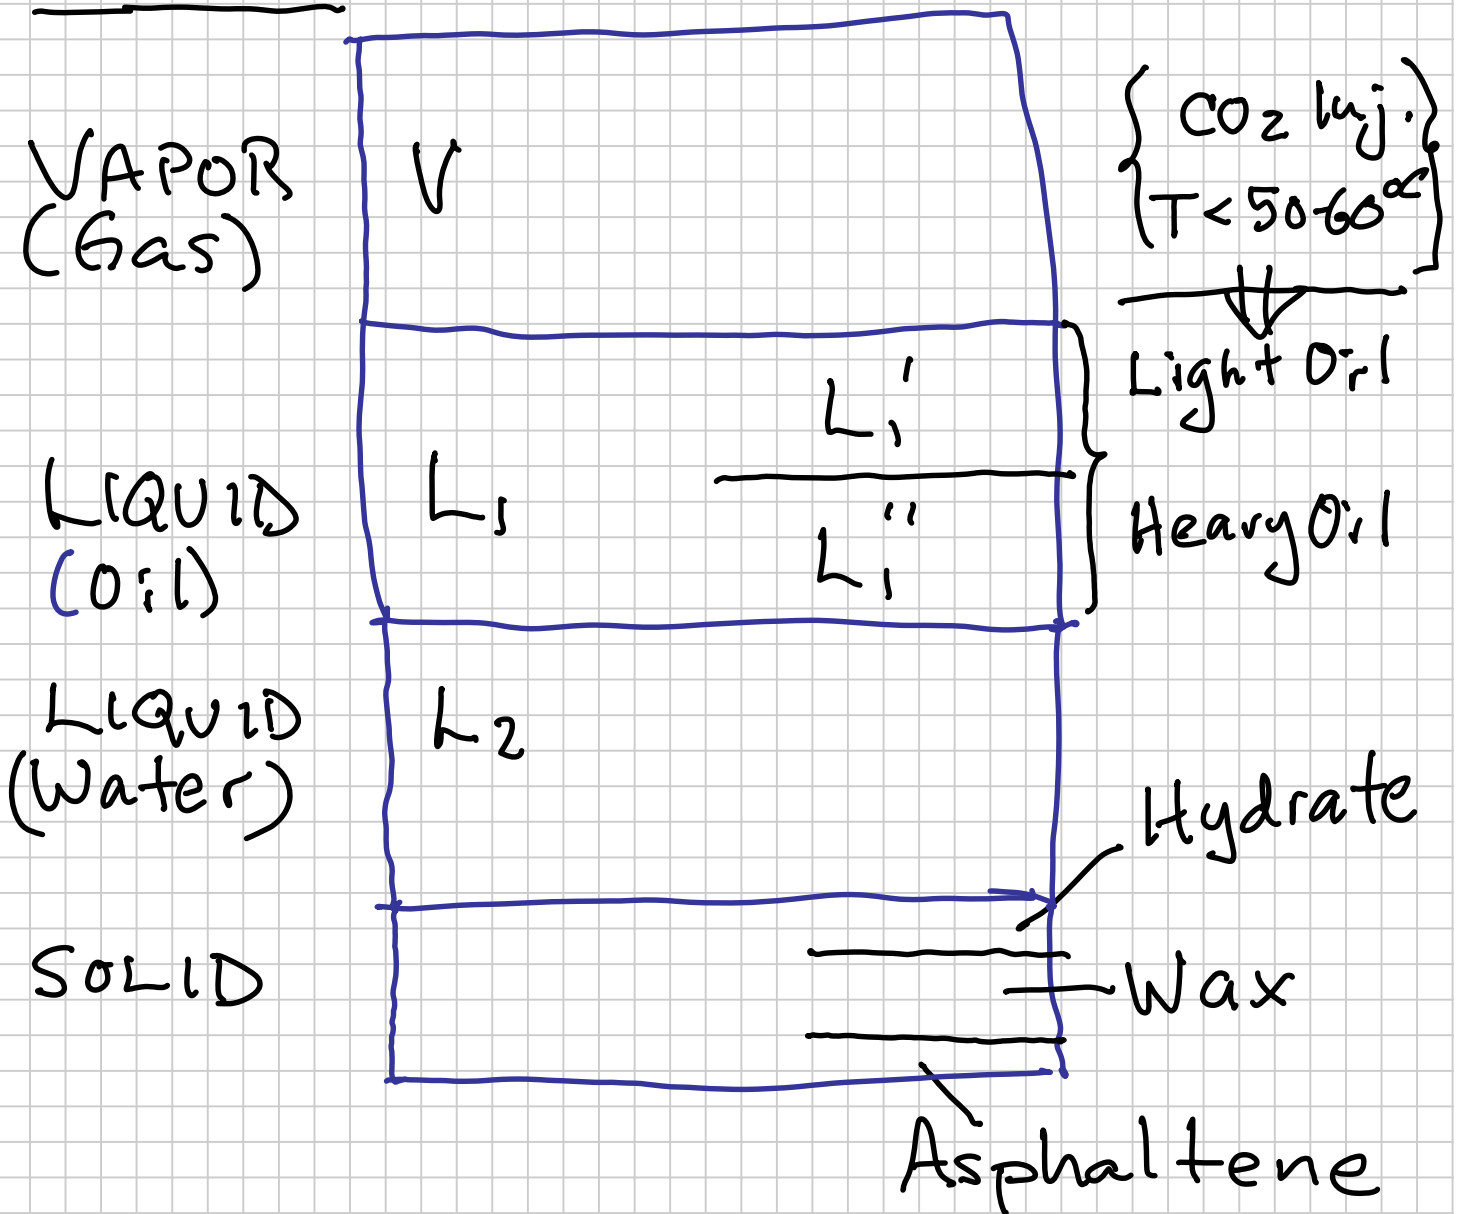 VAPOR
(Gas)
V
{CO₂ Inj.
T < 50-60°C}
L₁'
Light Oil
LIQUID
(Oil)
L₁
L₁''
Heavy Oil
LIQUID
(Water)
L₂
Hydrate
SOLID
Wax
Asphaltene